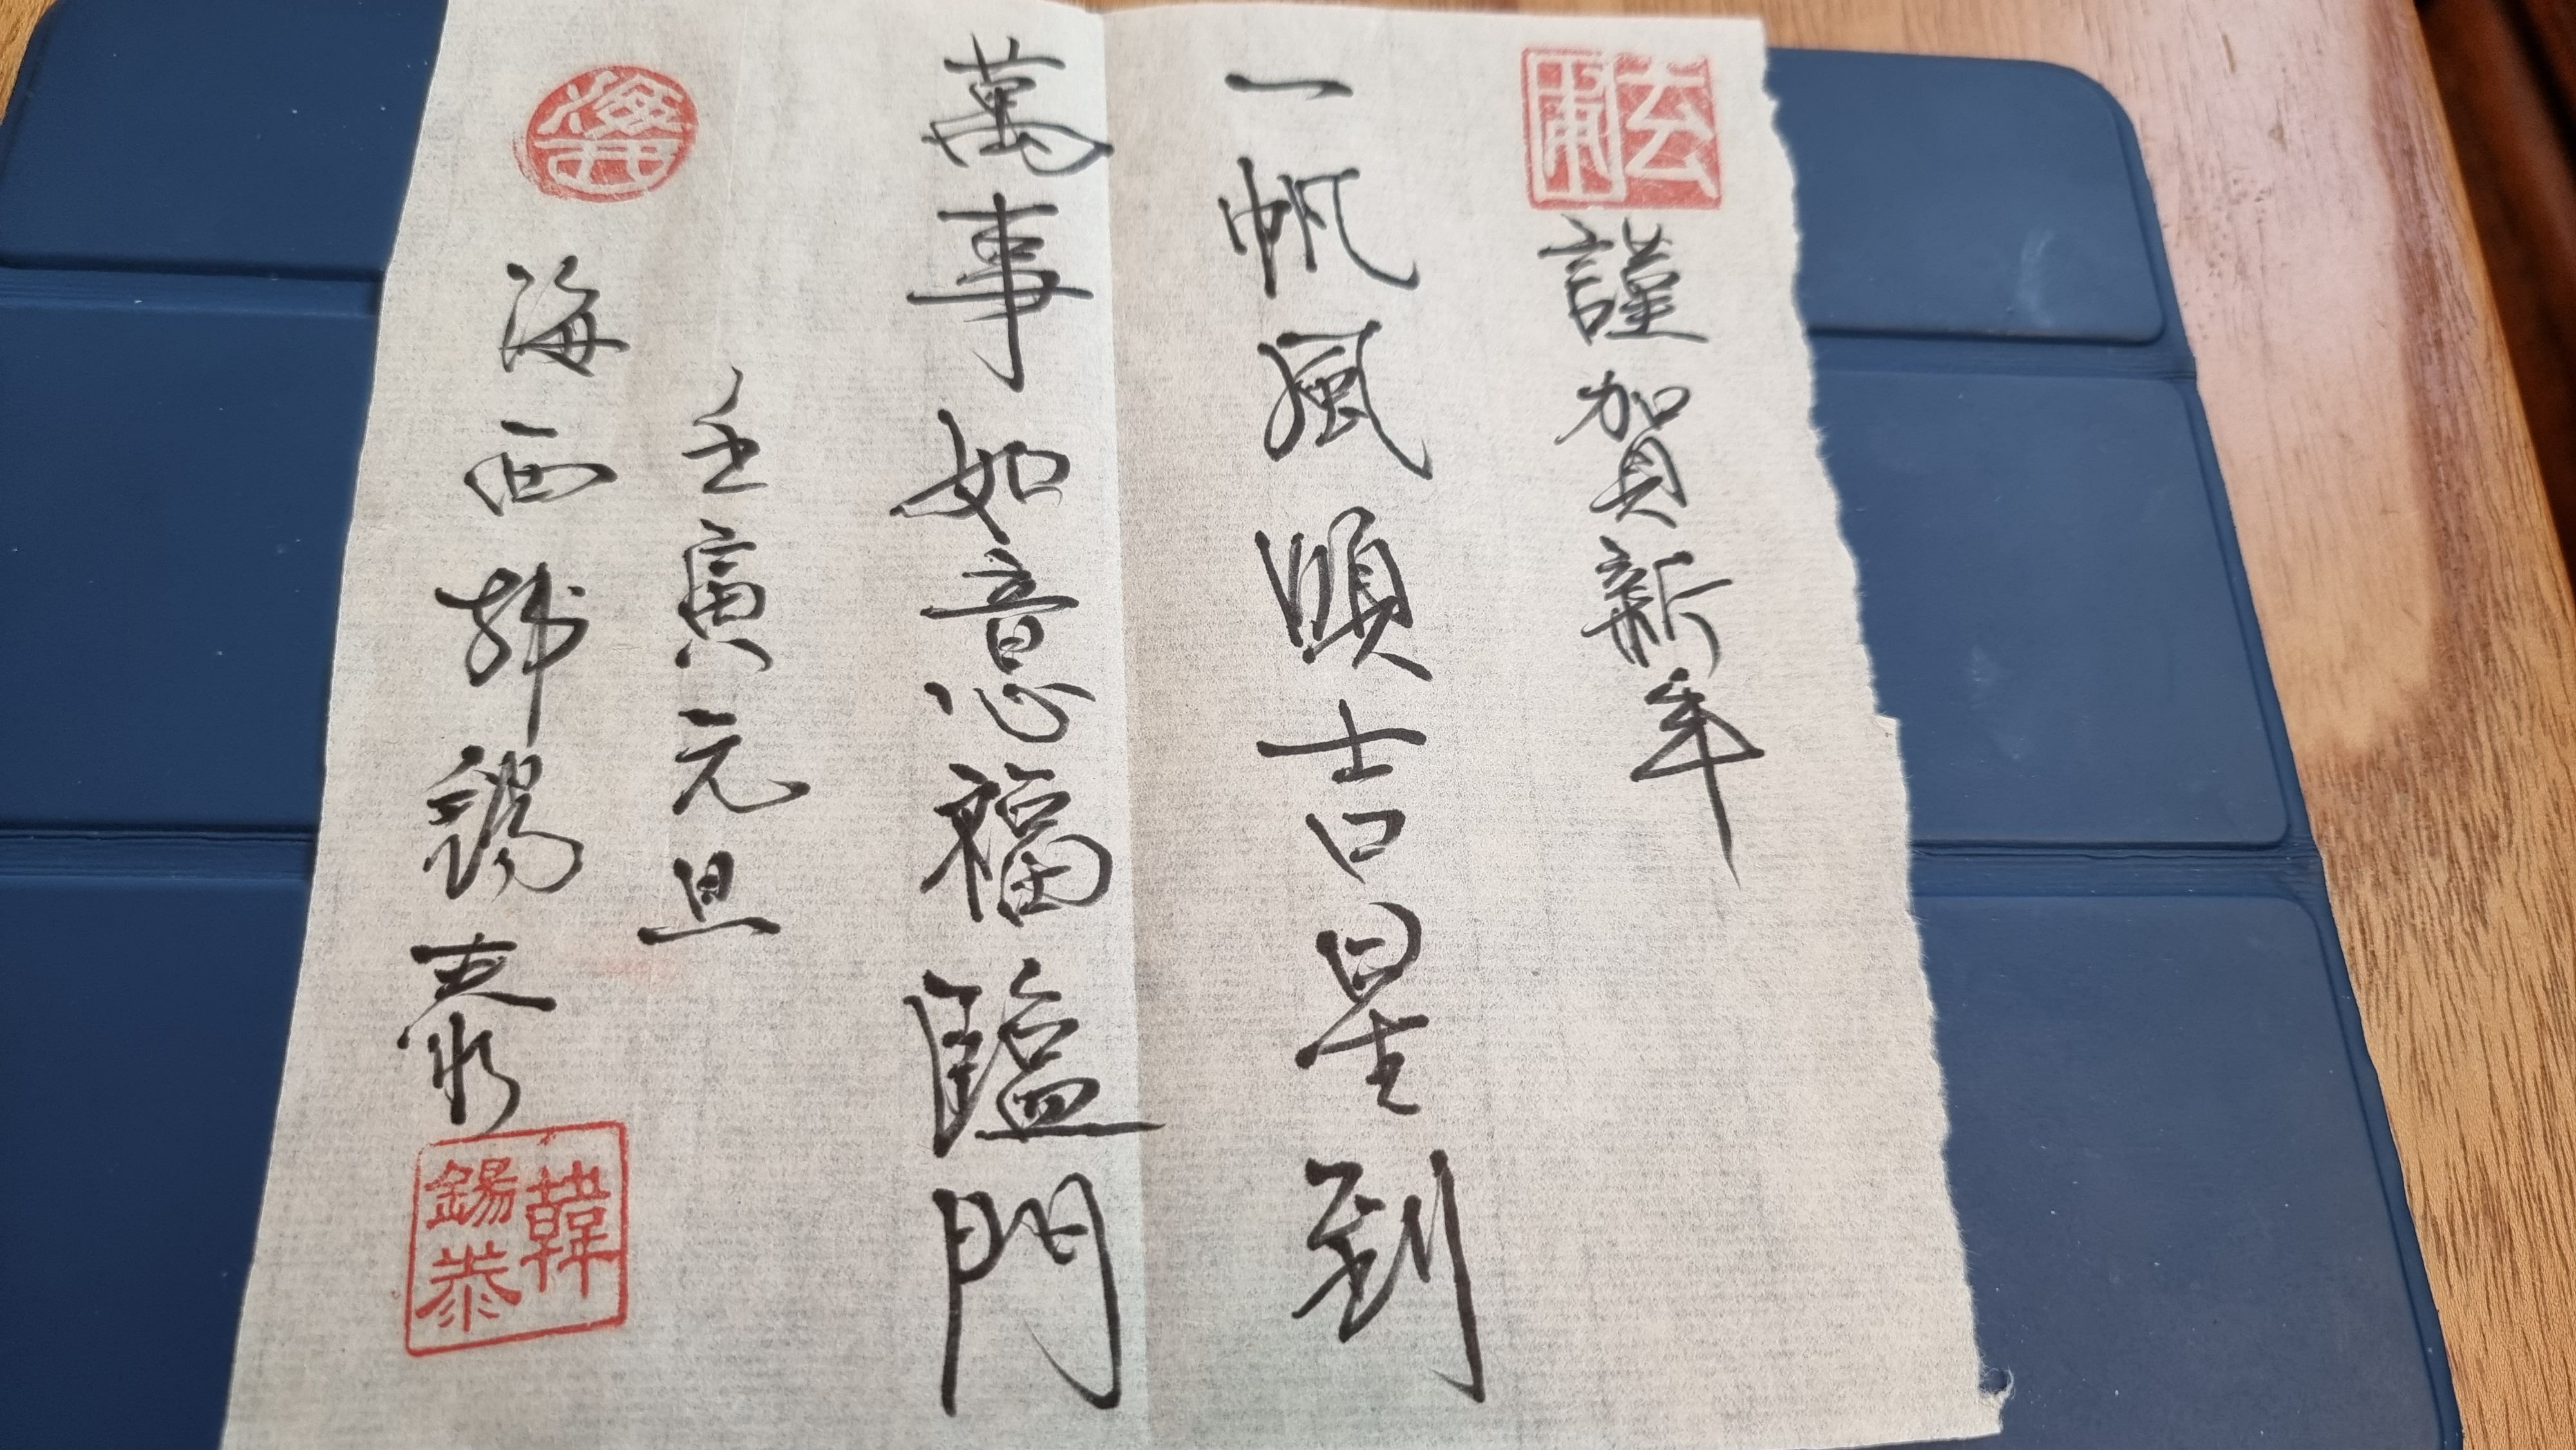 謹賀新年
一帆風順吉星到
萬事如意福臨門
壬寅元旦
海西韓錫泰
韓
錫泰